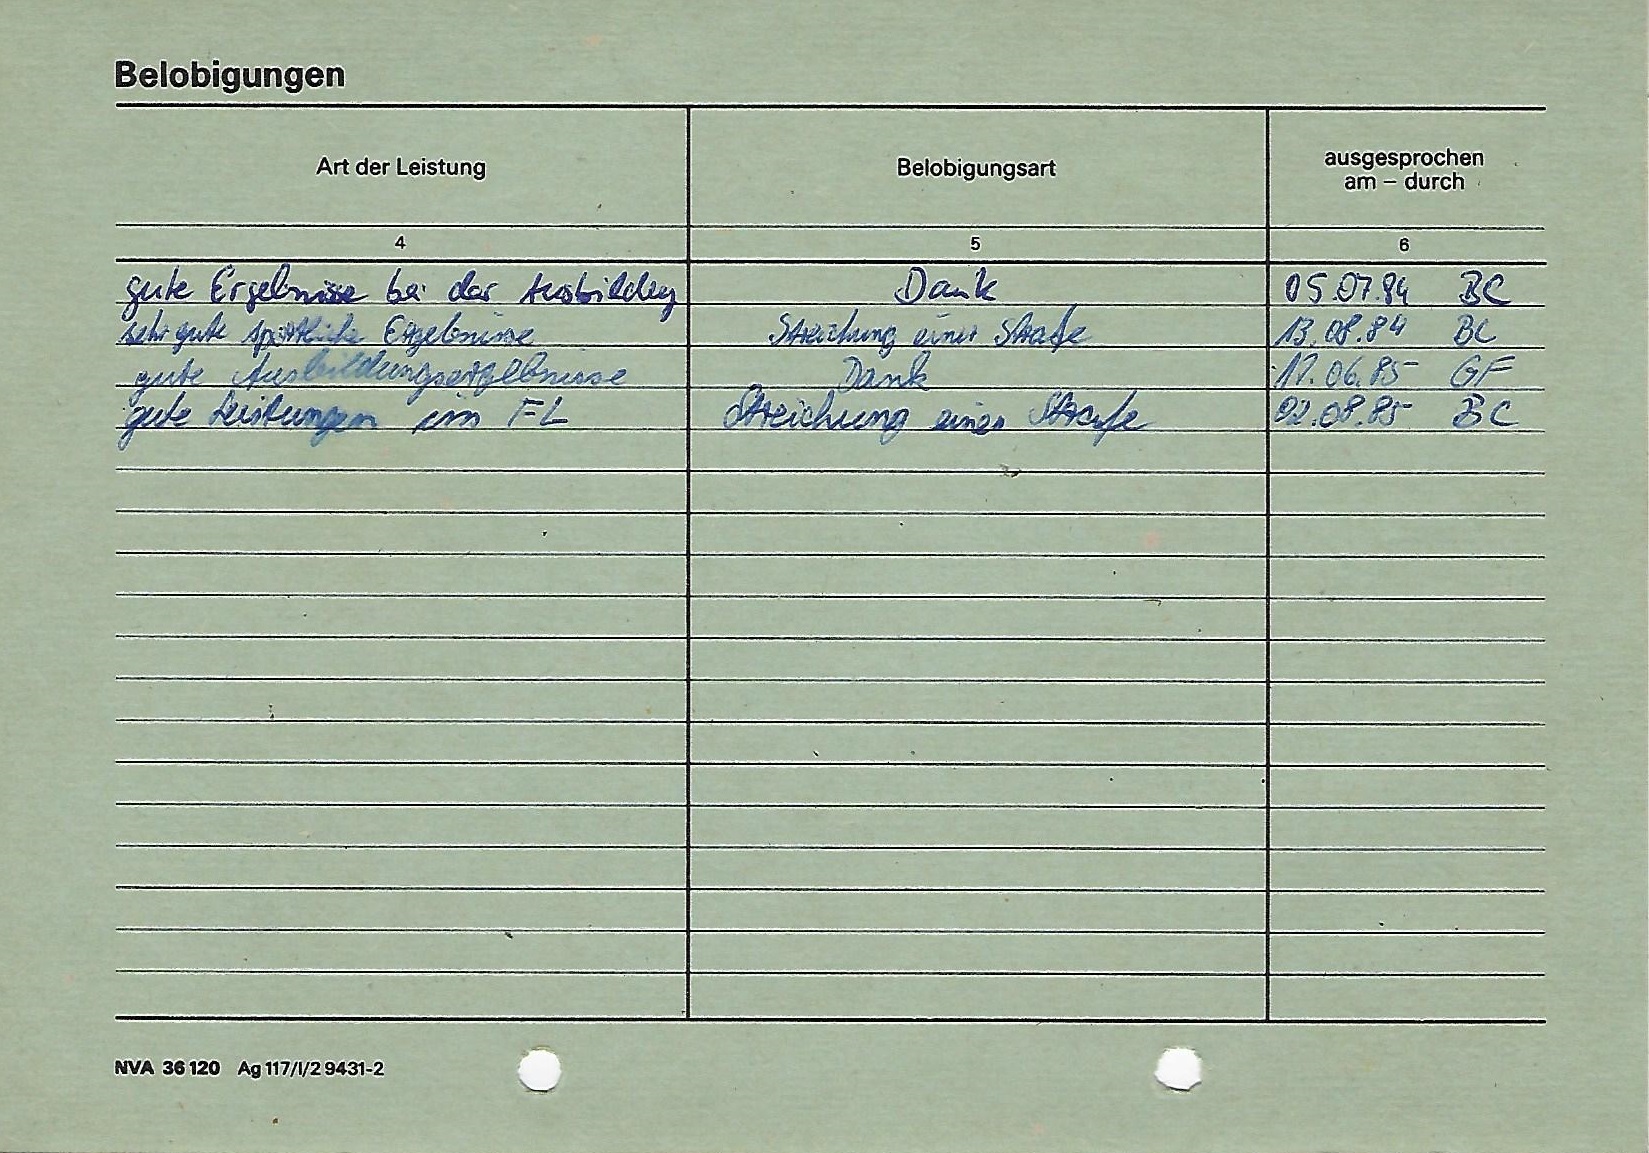 Belobigungen
Art der Leistung Belobigungsart ausgesprochen
am – durch
4 5 6
gute Ergebnisse bei der Ausbildung Dank 05.07.84 BC
sehr gute sportliche Ergebnisse Streichung einer Strafe 13.08.84 BC
gute Ausbildungsergebnisse Dank 17.06.85 GF
gute Leistungen im FL Streichung einer Strafe 02.08.85 BC
NVA 36 120 Ag 117/I/2 9431-2